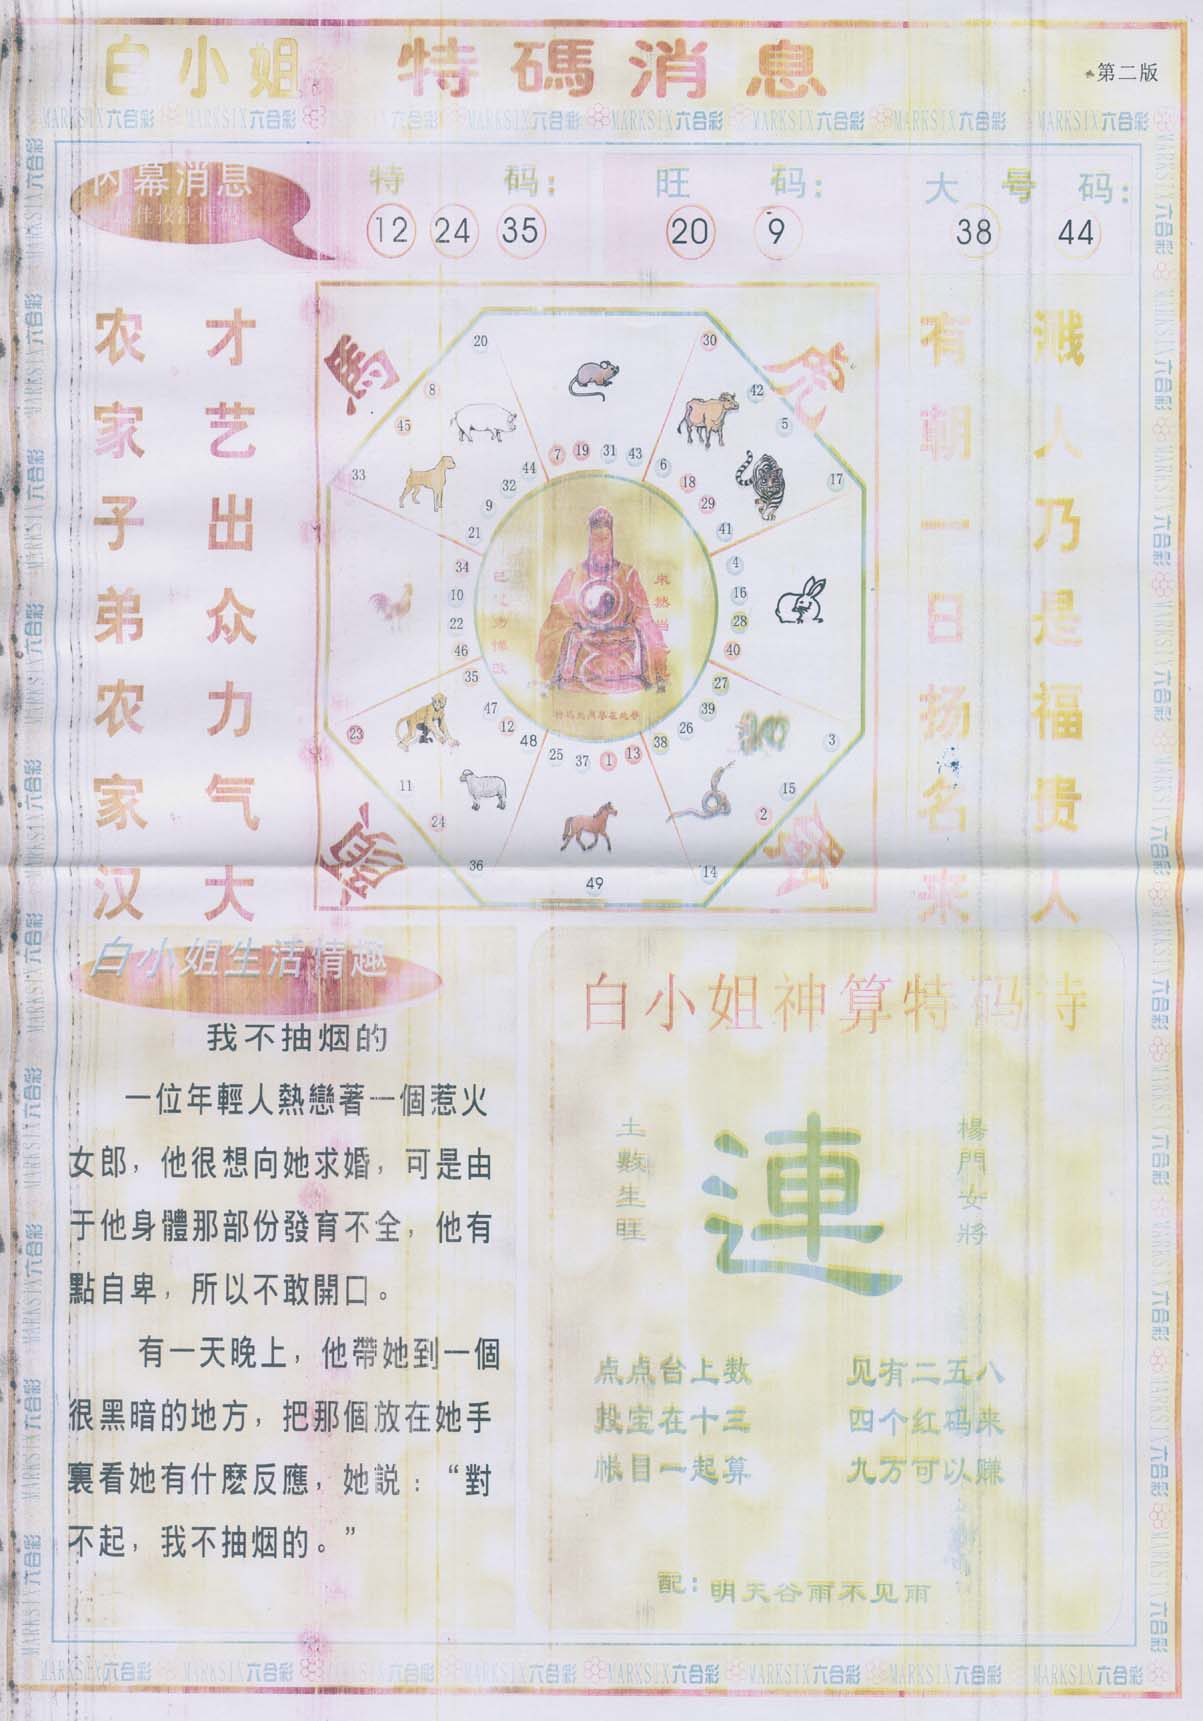 白小姐 特碼消息
第二版
MARKSIX六合彩 MARKSIX六合彩 MARKSIX六合彩 MARKSIX六合彩 MARKSIX六合彩 MARKSIX六合彩 MARKSIX六合彩 MARKSIX六合彩
内幕消息
特 码:
12 24 35
旺 码:
20 9
大 号 码:
38 44
农家子弟农家汉
才艺出众力气大
有朝一日扬名来
溅人乃是福贵人
馬
20 30
8 42
45 5
33 17
7 19 31 43
44 6
32 18
9 29
21 41
34 4
10 16
22 28
46 40
35 27
47 39
12 26
48 38
25 37 1 13
23 3
11 15
24 2
36 14
49
白小姐生活情趣
我不抽烟的
一位年輕人熱戀著一個惹火
女郎，他很想向她求婚，可是由
于他身體那部份發育不全，他有
點自卑，所以不敢開口。
有一天晚上，他帶她到一個
很黑暗的地方，把那個放在她手
裏看她有什麽反應，她説：“對
不起，我不抽烟的。”
白小姐神算特码诗
土數生旺
連
楊門女將
点点台上数 见有二五八
投宝在十三 四个红码来
帐目一起算 九方可以赚
配：明天谷雨不见雨
MARKSIX六合彩 MARKSIX六合彩 MARKSIX六合彩 MARKSIX六合彩 MARKSIX六合彩 MARKSIX六合彩 MARKSIX六合彩 MARKSIX六合彩